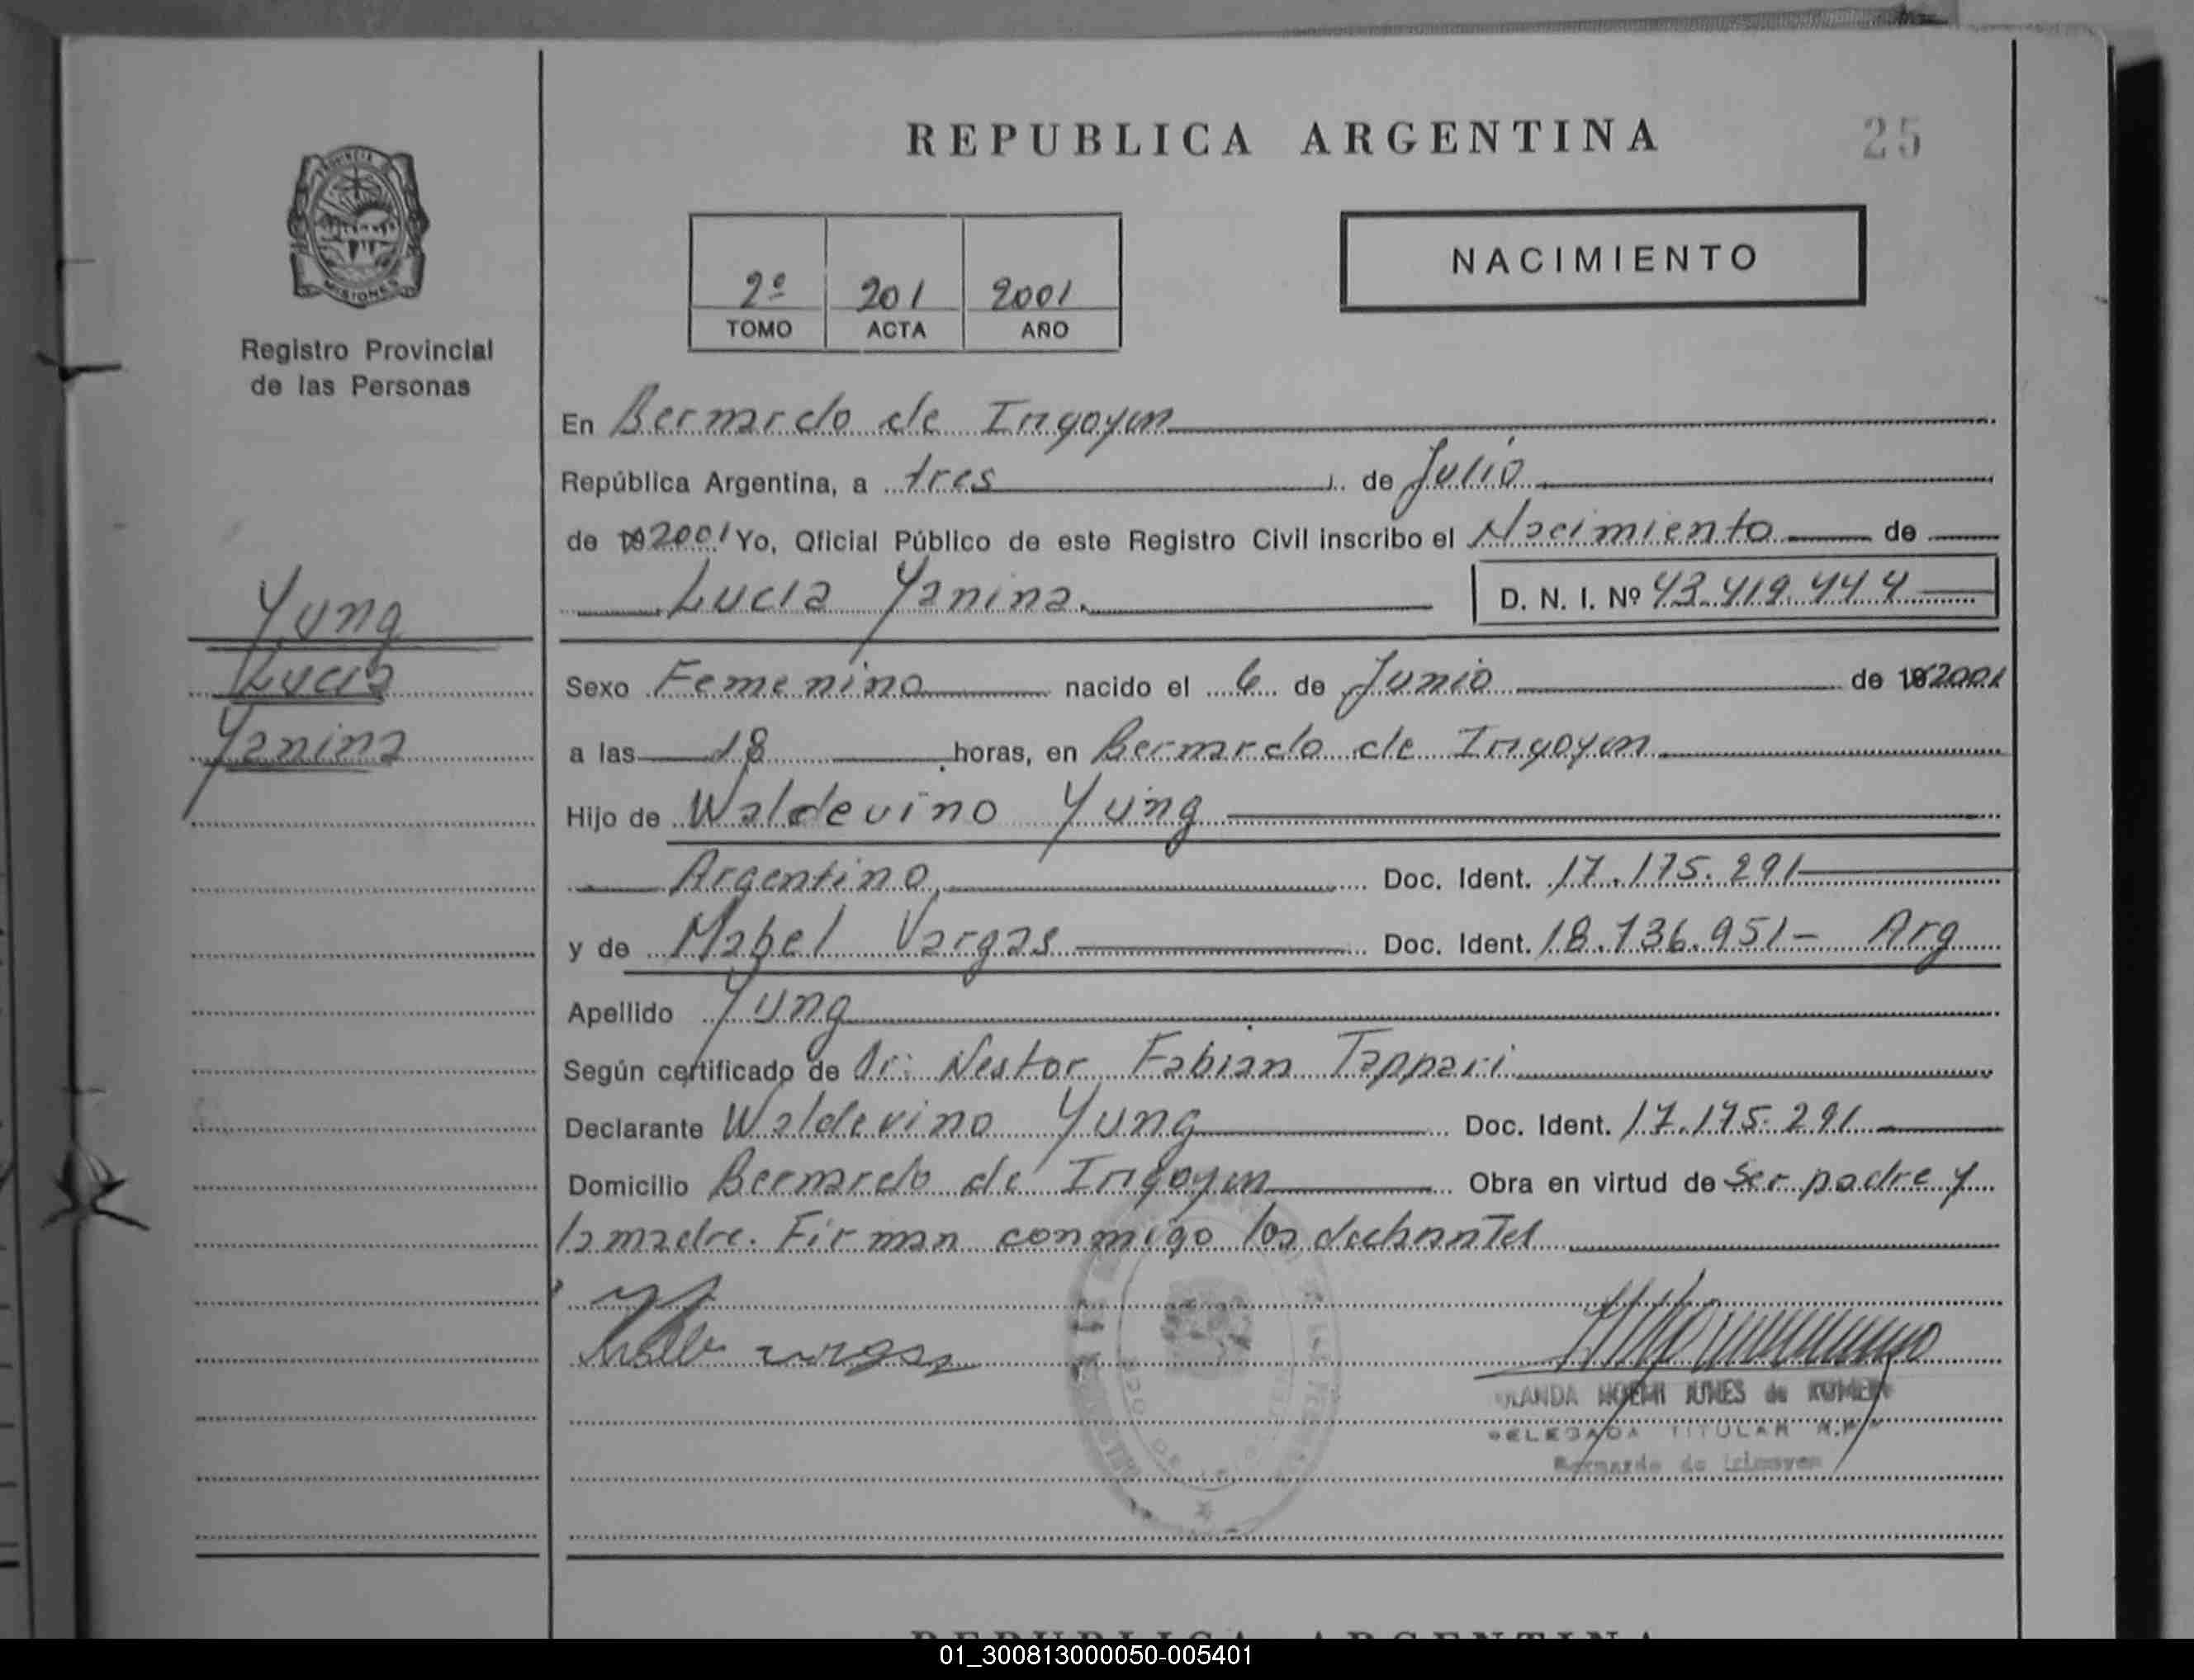 REPUBLICA ARGENTINA
25
PROVINCIA
MISIONES
Registro Provincial
de las Personas
2º 201 2001
TOMO ACTA AÑO
NACIMIENTO
En Bernardo de Irigoyen
República Argentina, a tres de Julio
de 192001 Yo, Oficial Público de este Registro Civil inscribo el Nacimiento de
Lucia Yanina.
D. N. I. Nº 43.419.444
Yung
Lucia
Yanina
Sexo Femenino nacido el 6 de Junio de 192001
a las 18 horas, en Bernardo de Irigoyen
Hijo de Waldevino Yung
Argentino, Doc. Ident. 17.175.291
y de Mabel Vargas Doc. Ident. 18.136.951- Arg
Apellido Yung
Según certificado de Dr: Nestor Fabian Tappari
Declarante Waldevino Yung Doc. Ident. 17.175.291
Domicilio Bernardo de Irigoyen Obra en virtud de Ser padre y
la madre. Firman conmigo los
NOEMI de
DELEGADA TITULAR
Bernardo de Irigoyen
REPUBLICA ARGENTINA
01_300813000050-005401